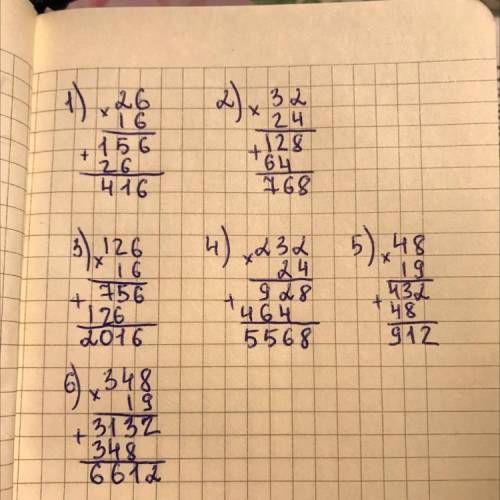 1) × 26
16
+ 156
26
416
2) × 32
24
+ 128
64
768
3) × 126
16
+ 756
126
2016
4) × 232
24
+ 928
464
5568
5) × 48
19
+ 432
48
912
6) × 348
19
+ 3132
348
6612